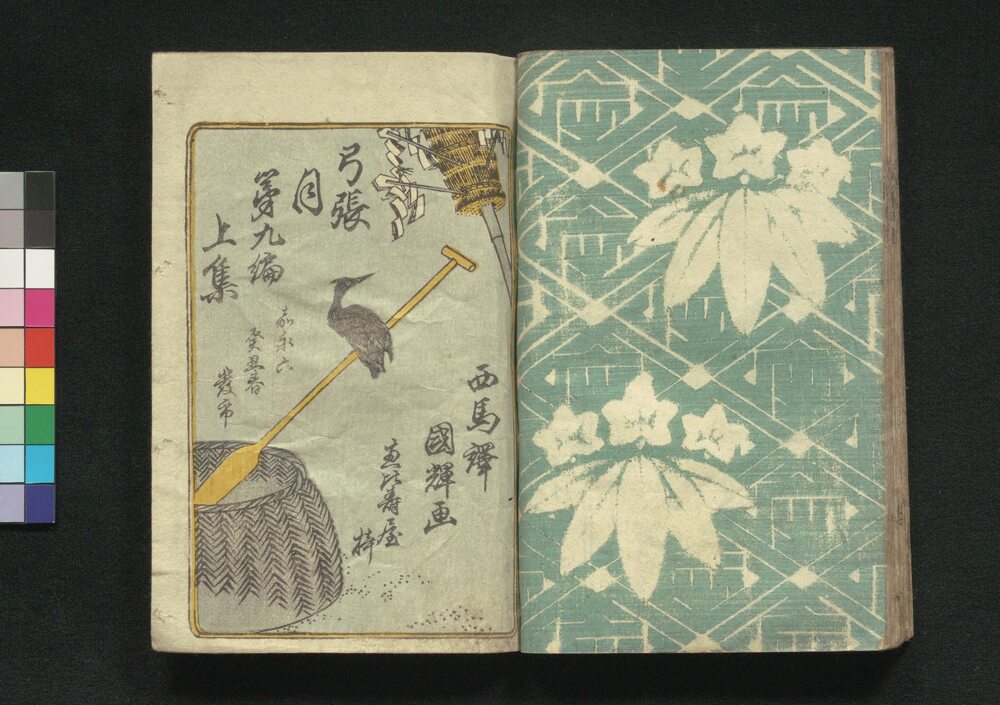 弓張
月
第九編
上集
嘉永六
癸丑春
發市
西馬譯
國輝画
恵比寿屋
梓